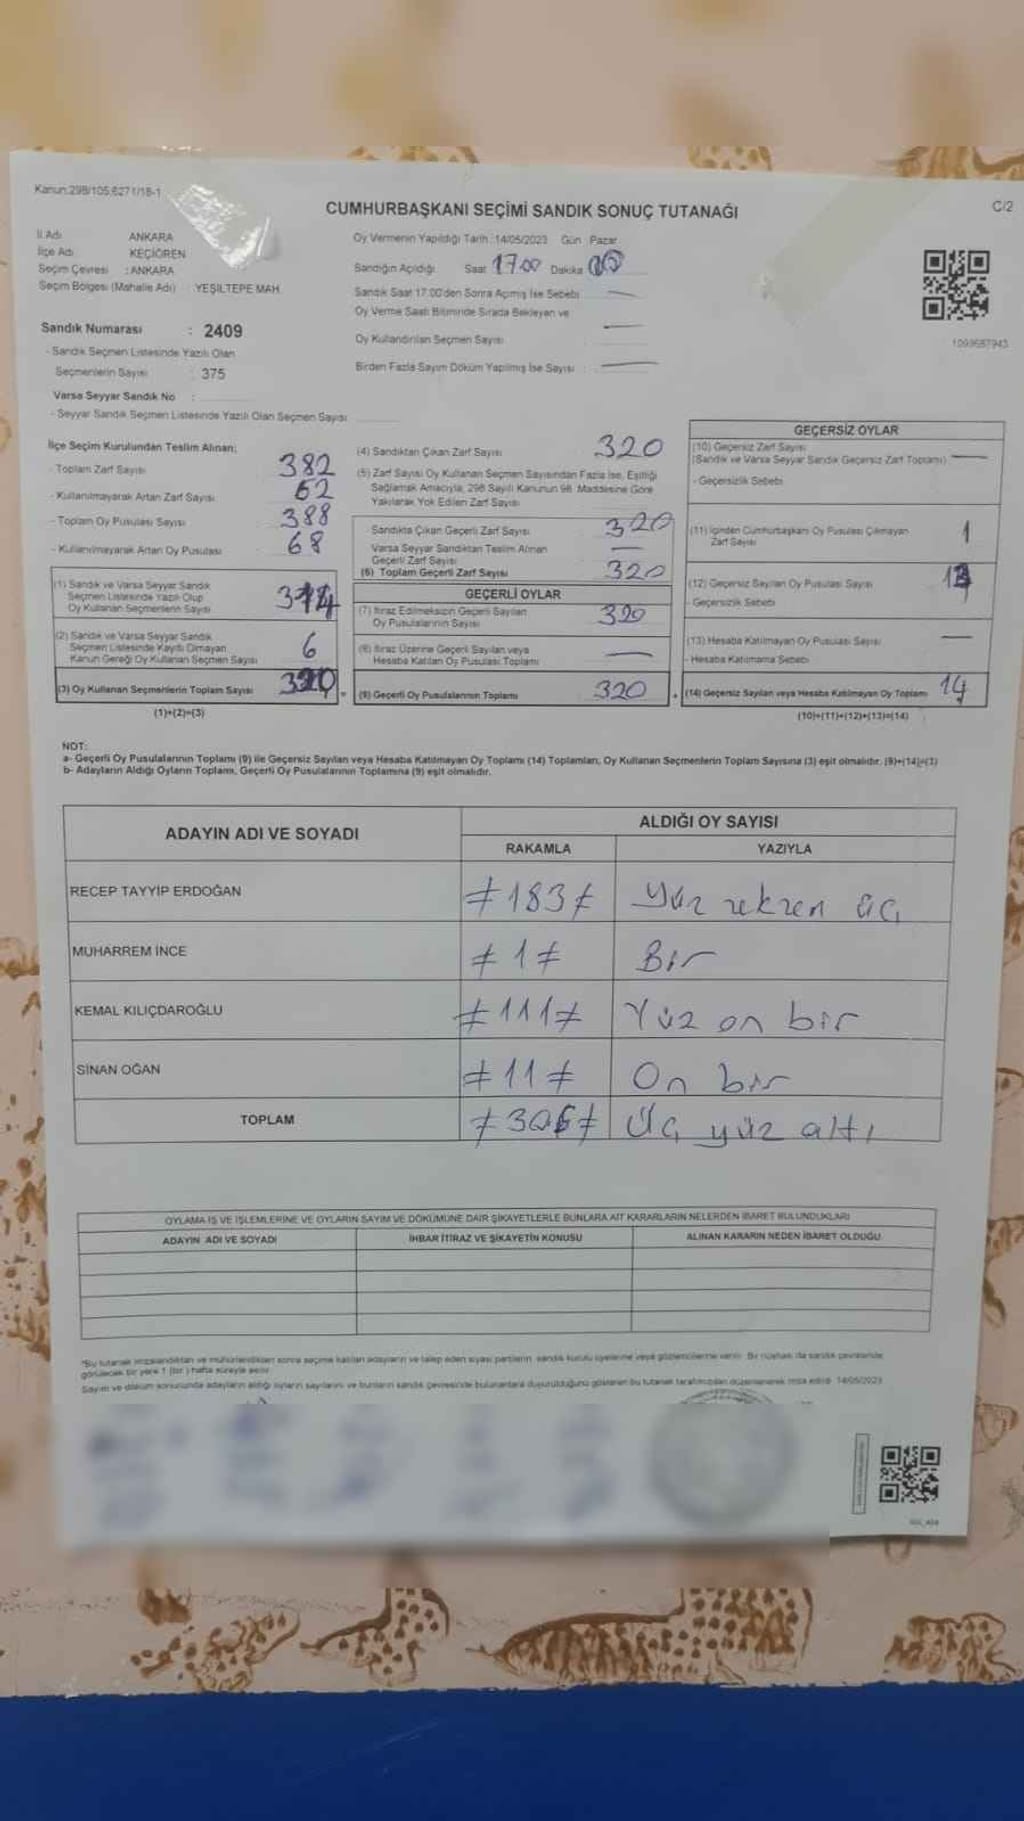 Kanun:298/105,6271/18-1
C/2
CUMHURBAŞKANI SEÇİMİ SANDIK SONUÇ TUTANAĞI
İl Adı ANKARA
İlçe Adı KEÇİÖREN
Seçim Çevresi : ANKARA
Seçim Bölgesi (Mahalle Adı) YEŞİLTEPE MAH.
Sandık Numarası : 2409
- Sandık Seçmen Listesinde Yazılı Olan
Seçmenlerin Sayısı 375
Varsa Seyyar Sandık No :
- Seyyar Sandık Seçmen Listesinde Yazılı Olan Seçmen Sayısı
Oy Vermenin Yapıldığı Tarih : 14/05/2023 Gün : Pazar
Sandığın Açıldığı Saat 17.00 Dakika 00
Sandık Saat 17:00'den Sonra Açılmış İse Sebebi —
Oy Verme Saati Bitiminde Sırada Bekleyen ve
Oy Kullandırılan Seçmen Sayısı —
Birden Fazla Sayım Döküm Yapılmış İse Sayısı : —
1099687943
İlçe Seçim Kurulundan Teslim Alınan;
- Toplam Zarf Sayısı 382
- Kullanılmayarak Artan Zarf Sayısı 62
- Toplam Oy Pusulası Sayısı 388
- Kullanılmayarak Artan Oy Pusulası 68
(1) Sandık ve Varsa Seyyar Sandık
Seçmen Listesinde Yazılı Olup
Oy Kullanan Seçmenlerin Sayısı 314
(2) Sandık ve Varsa Seyyar Sandık
Seçmen Listesinde Kayıtlı Olmayan
Kanun Gereği Oy Kullanan Seçmen Sayısı 6
(3) Oy Kullanan Seçmenlerin Toplam Sayısı 320
(1)+(2)=(3)
(4) Sandıktan Çıkan Zarf Sayısı 320
(5) Zarf Sayısı Oy Kullanan Seçmen Sayısından Fazla İse, Eşitliği
Sağlamak Amacıyla, 298 Sayılı Kanunun 98. Maddesine Göre
Yakılarak Yok Edilen Zarf Sayısı
Sandıkta Çıkan Geçerli Zarf Sayısı 320
Varsa Seyyar Sandıktan Teslim Alınan
Geçerli Zarf Sayısı —
(6) Toplam Geçerli Zarf Sayısı 320
GEÇERLİ OYLAR
(7) İtiraz Edilmeksizin Geçerli Sayılan
Oy Pusulalarının Sayısı 320
(8) İtiraz Üzerine Geçerli Sayılan veya
Hesaba Katılan Oy Pusulası Toplamı —
(9) Geçerli Oy Pusulalarının Toplamı 320
GEÇERSİZ OYLAR
(10) Geçersiz Zarf Sayısı
(Sandık ve Varsa Seyyar Sandık Geçersiz Zarf Toplamı) —
- Geçersizlik Sebebi
(11) İçinden Cumhurbaşkanı Oy Pusulası Çıkmayan
Zarf Sayısı 1
(12) Geçersiz Sayılan Oy Pusulası Sayısı 13
- Geçersizlik Sebebi
(13) Hesaba Katılmayan Oy Pusulası Sayısı —
- Hesaba Katılmama Sebebi
(14) Geçersiz Sayılan veya Hesaba Katılmayan Oy Toplamı 14
(10)+(11)+(12)+(13)=(14)
NOT:
a- Geçerli Oy Pusulalarının Toplamı (9) ile Geçersiz Sayılan veya Hesaba Katılmayan Oy Toplamı (14) Toplamları, Oy Kullanan Seçmenlerin Toplam Sayısına (3) eşit olmalıdır. (9)+(14)=(3)
b- Adayların Aldığı Oyların Toplamı, Geçerli Oy Pusulalarının Toplamına (9) eşit olmalıdır.
ADAYIN ADI VE SOYADI
ALDIĞI OY SAYISI
RAKAMLA YAZIYLA
RECEP TAYYİP ERDOĞAN ≠183≠ Yüz seksen üç
MUHARREM İNCE ≠1≠ Bir
KEMAL KILIÇDAROĞLU ≠111≠ Yüz on bir
SİNAN OĞAN ≠11≠ On bir
TOPLAM ≠306≠ Üç yüz altı
OYLAMA İŞ VE İŞLEMLERİNE VE OYLARIN SAYIM VE DÖKÜMÜNE DAİR ŞİKAYETLERLE BUNLARA AİT KARARLARIN NELERDEN İBARET BULUNDUKLARI
ADAYIN ADI VE SOYADI İHBAR İTİRAZ VE ŞİKAYETİN KONUSU ALINAN KARARIN NEDEN İBARET OLDUĞU
*Bu tutanak imzalandıktan ve mühürlendikten sonra seçime katılan adayların ve talep eden siyasi partilerin, sandık kurulu üyelerine veya gözlemcilerine verilir. Bir nüshası da sandık çevresinde
görülecek bir yere 1 (bir) hafta süreyle asılır.
Sayım ve döküm sonucunda adayların aldığı oyların sayılarını ve bunların sandık çevresinde bulunanlara duyurulduğunu gösteren bu tutanak tarafımızdan düzenlenerek imza edildi. 14/05/2023